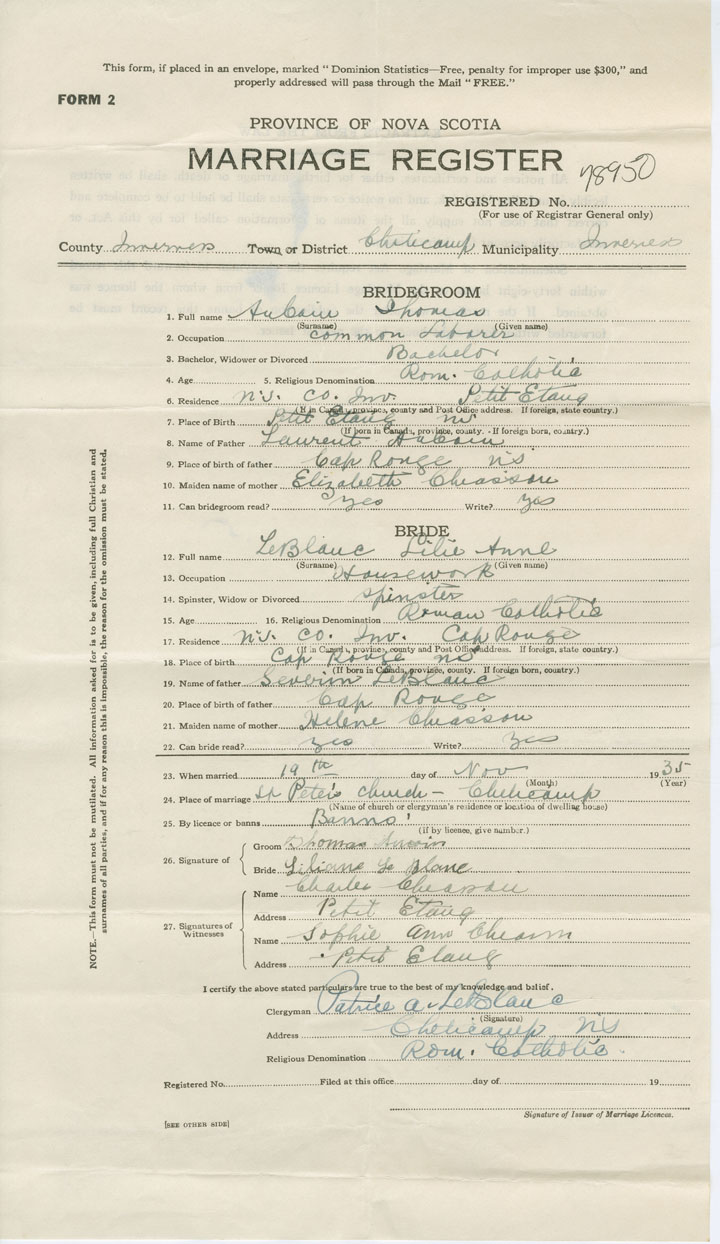 This form, if placed in an envelope, marked " Dominion Statistics—Free, penalty for improper use $300," and
properly addressed will pass through the Mail " FREE."
FORM 2
PROVINCE OF NOVA SCOTIA
MARRIAGE REGISTER 78950
REGISTERED No.
(For use of Registrar General only)
County Inverness Town or District Cheticamp Municipality Inverness
BRIDEGROOM
1. Full name AuCoin Thomas
(Surname) (Given name)
2. Occupation Common Laborer
3. Bachelor, Widower or Divorced Bachelor
4. Age 5. Religious Denomination Rom. Catholic
6. Residence N.S. Co. Inv. Petit Etang
(If in Canada, province, county and Post Office address. If foreign, state country.)
7. Place of Birth Petit Etang NS
(If born in Canada, province, county. - If foreign born, country.)
8. Name of Father Laurent AuCoin
9. Place of birth of father Cap Rouge NS
10. Maiden name of mother Elizabeth Chiasson
11. Can bridegroom read? yes Write? yes
BRIDE
12. Full name LeBlanc Lilie Anne
(Surname) (Given name)
13. Occupation Housework
14. Spinster, Widow or Divorced Spinster
15. Age 16. Religious Denomination Roman Catholic
17. Residence N.S. Co. Inv. Cap Rouge
(If in Canada, province, county and Post Office address. If foreign, state country.)
18. Place of birth Cap Rouge NS
(If born in Canada, province, county. If foreign born, country.)
19. Name of father Severin LeBlanc
20. Place of birth of father Cap Rouge
21. Maiden name of mother Helene Chiasson
22. Can bride read? yes Write? yes
23. When married 19th day of Nov 1935
(Month) (Year)
24. Place of marriage St Peter's church - Cheticamp
(Name of church or clergyman's residence or location of dwelling house)
25. By licence or banns Banns
(if by licence, give number.)
26. Signature of
Groom Thomas Aucoin
Bride Liliane Le Blanc
27. Signatures of Witnesses
Name Charlie Chiasson
Address Petit Etang
Name Sophie Ann Chiasson
Address Petit Etang
I certify the above stated particulars are true to the best of my knowledge and belief.
Clergyman Patrice A. LeBlanc
(Signature)
Address Cheticamp NS
Religious Denomination Rom. Catholic
Registered No. Filed at this office day of 19
Signature of Issuer of Marriage Licences.
[SEE OTHER SIDE]
NOTE.—This form must not be mutilated. All information asked for is to be given, including full Christian and
surnames of all parties, and if for any reason this is impossible, the reason for the omission must be stated.